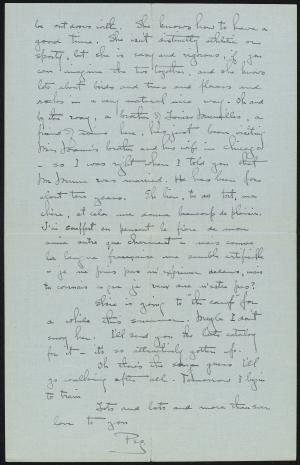 be out doors with. She knows how to have a
good time. She isn't distinctly athletic or
sporty, but she is easy and vigorous, if you
can imagine the two together, and she knows
lots about birds and trees and flowers and
rocks in a very natural nice way. Oh and
by the way, a brother of Louise
friend of here, has just been visiting
brother and his wife in Chicago
— so I was right when I told you that
Mr. was married. He has been for
about two years. Eh bien, tu as tort, ma
chère, et cela me donne beaucoup de plaisir.
J'ai souffert en pensant
amie autre que charmant — mais comme
la langue française me semble
— je ne puis pas m'exprimer dedans, mais
tu connais ce que je veux dire n'est ce pas?
Elsie is going to "the camp" for
a while this summer. Maybe I don't
envy her. I'll send you the little catalog
for it — it's so attractively gotten up.
Oh there's the I guess I'll
go walking after all. Tomorrow I begin
to train
Lots and lots and more than ever
love to you
Peg